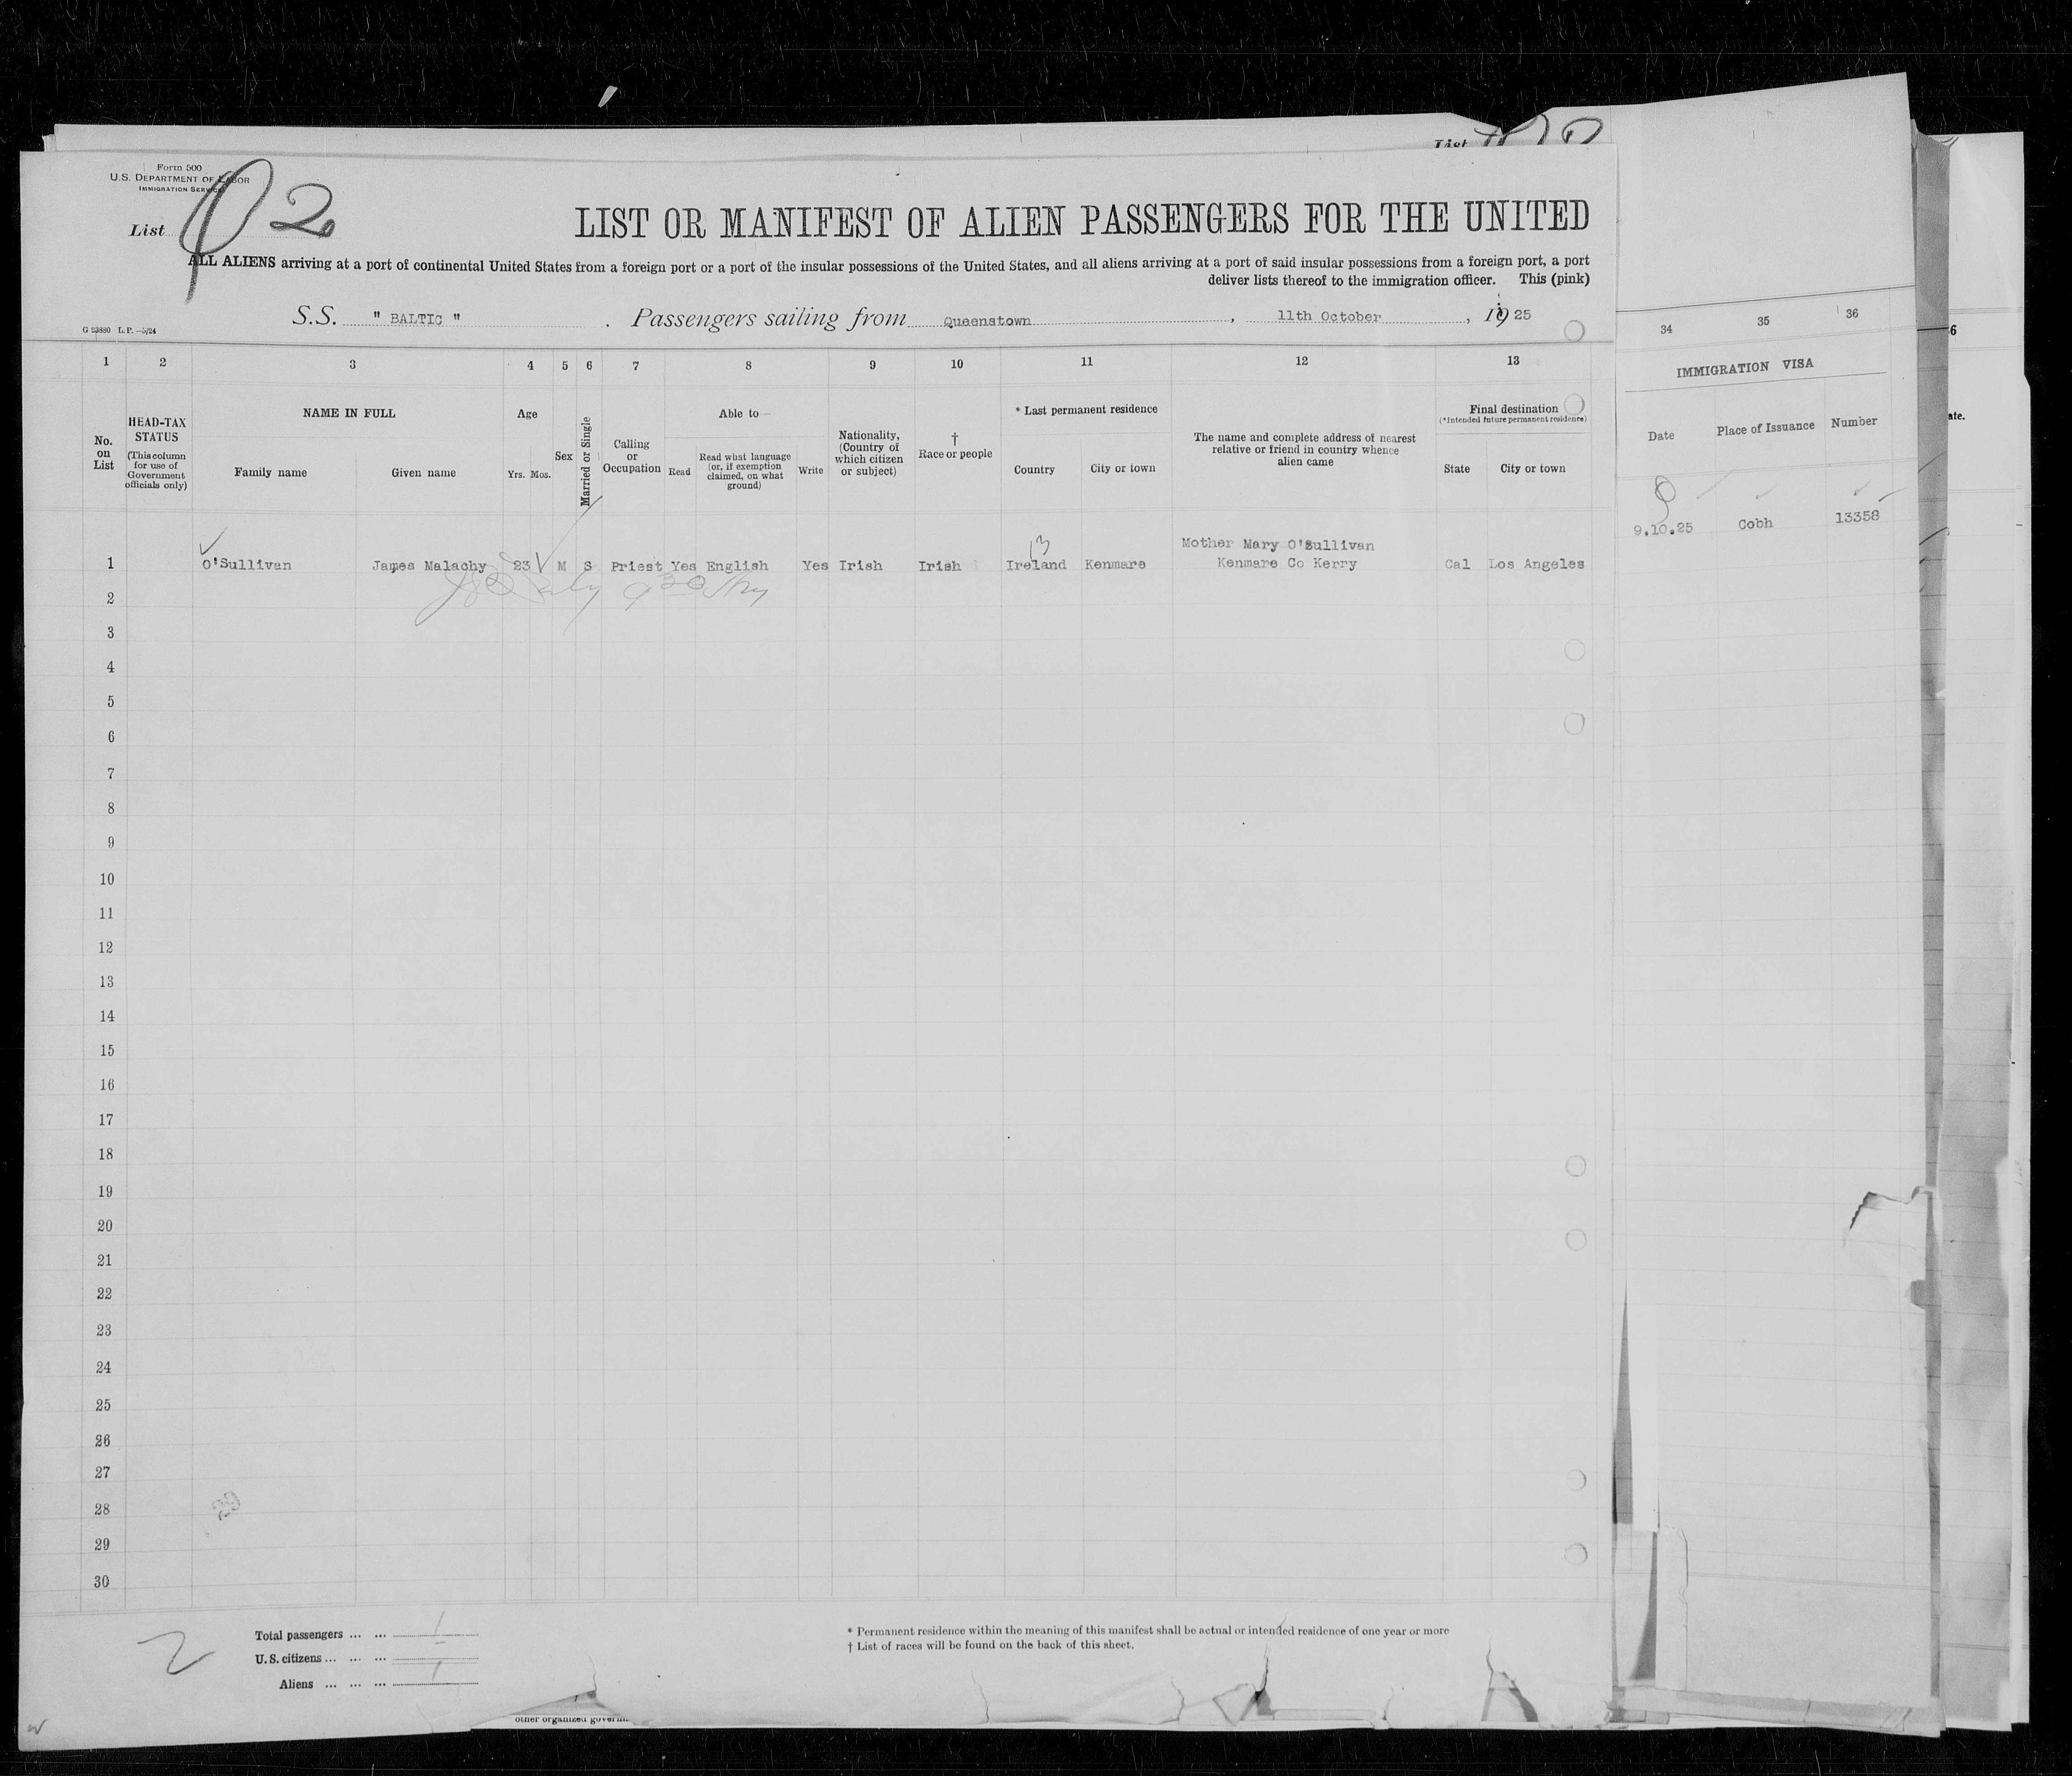 List
Form 500
U.S. DEPARTMENT OF LABOR
IMMIGRATION SERVICE
List 2
LIST OR MANIFEST OF ALIEN PASSENGERS FOR THE UNITED
ALL ALIENS arriving at a port of continental United States from a foreign port or a port of the insular possessions of the United States, and all aliens arriving at a port of said insular possessions from a foreign port, a port
deliver lists thereof to the immigration officer. This (pink)
S.S. " BALTIC " . Passengers sailing from Queenstown , 11th October , 1925
G 23880 L. P.—5/24
1 2 3 4 5 6 7 8 9 10 11 12 13
34 35 36
6
IMMIGRATION VISA
No. on List
HEAD-TAX STATUS
(This column for use of Government officials only)
NAME IN FULL
Family name Given name
Age
Yrs. Mos.
Sex
Married or Single
Calling or Occupation
Able to—
Read
Read what language (or, if exemption claimed, on what ground)
Write
Nationality, (Country of which citizen or subject)
† Race or people
* Last permanent residence
Country City or town
The name and complete address of nearest relative or friend in country whence alien came
Final destination
(*Intended future permanent residence)
State City or town
Date Place of Issuance Number
ate.
9.10.25 Cobh 13358
13
Mother Mary O'Sullivan
1 O'Sullivan James Malachy 23 M S Priest Yes English Yes Irish Irish Ireland Kenmare Kenmare Co Kerry Cal Los Angeles
2
3
4
5
6
7
8
9
10
11
12
13
14
15
16
17
18
19
20
21
22
23
24
25
26
27
28
29
30
29
2
Total passengers ... ... 1
U. S. citizens ... ... ...
Aliens ... ... ... 1
* Permanent residence within the meaning of this manifest shall be actual or intended residence of one year or more
† List of races will be found on the back of this sheet.
other organized governm